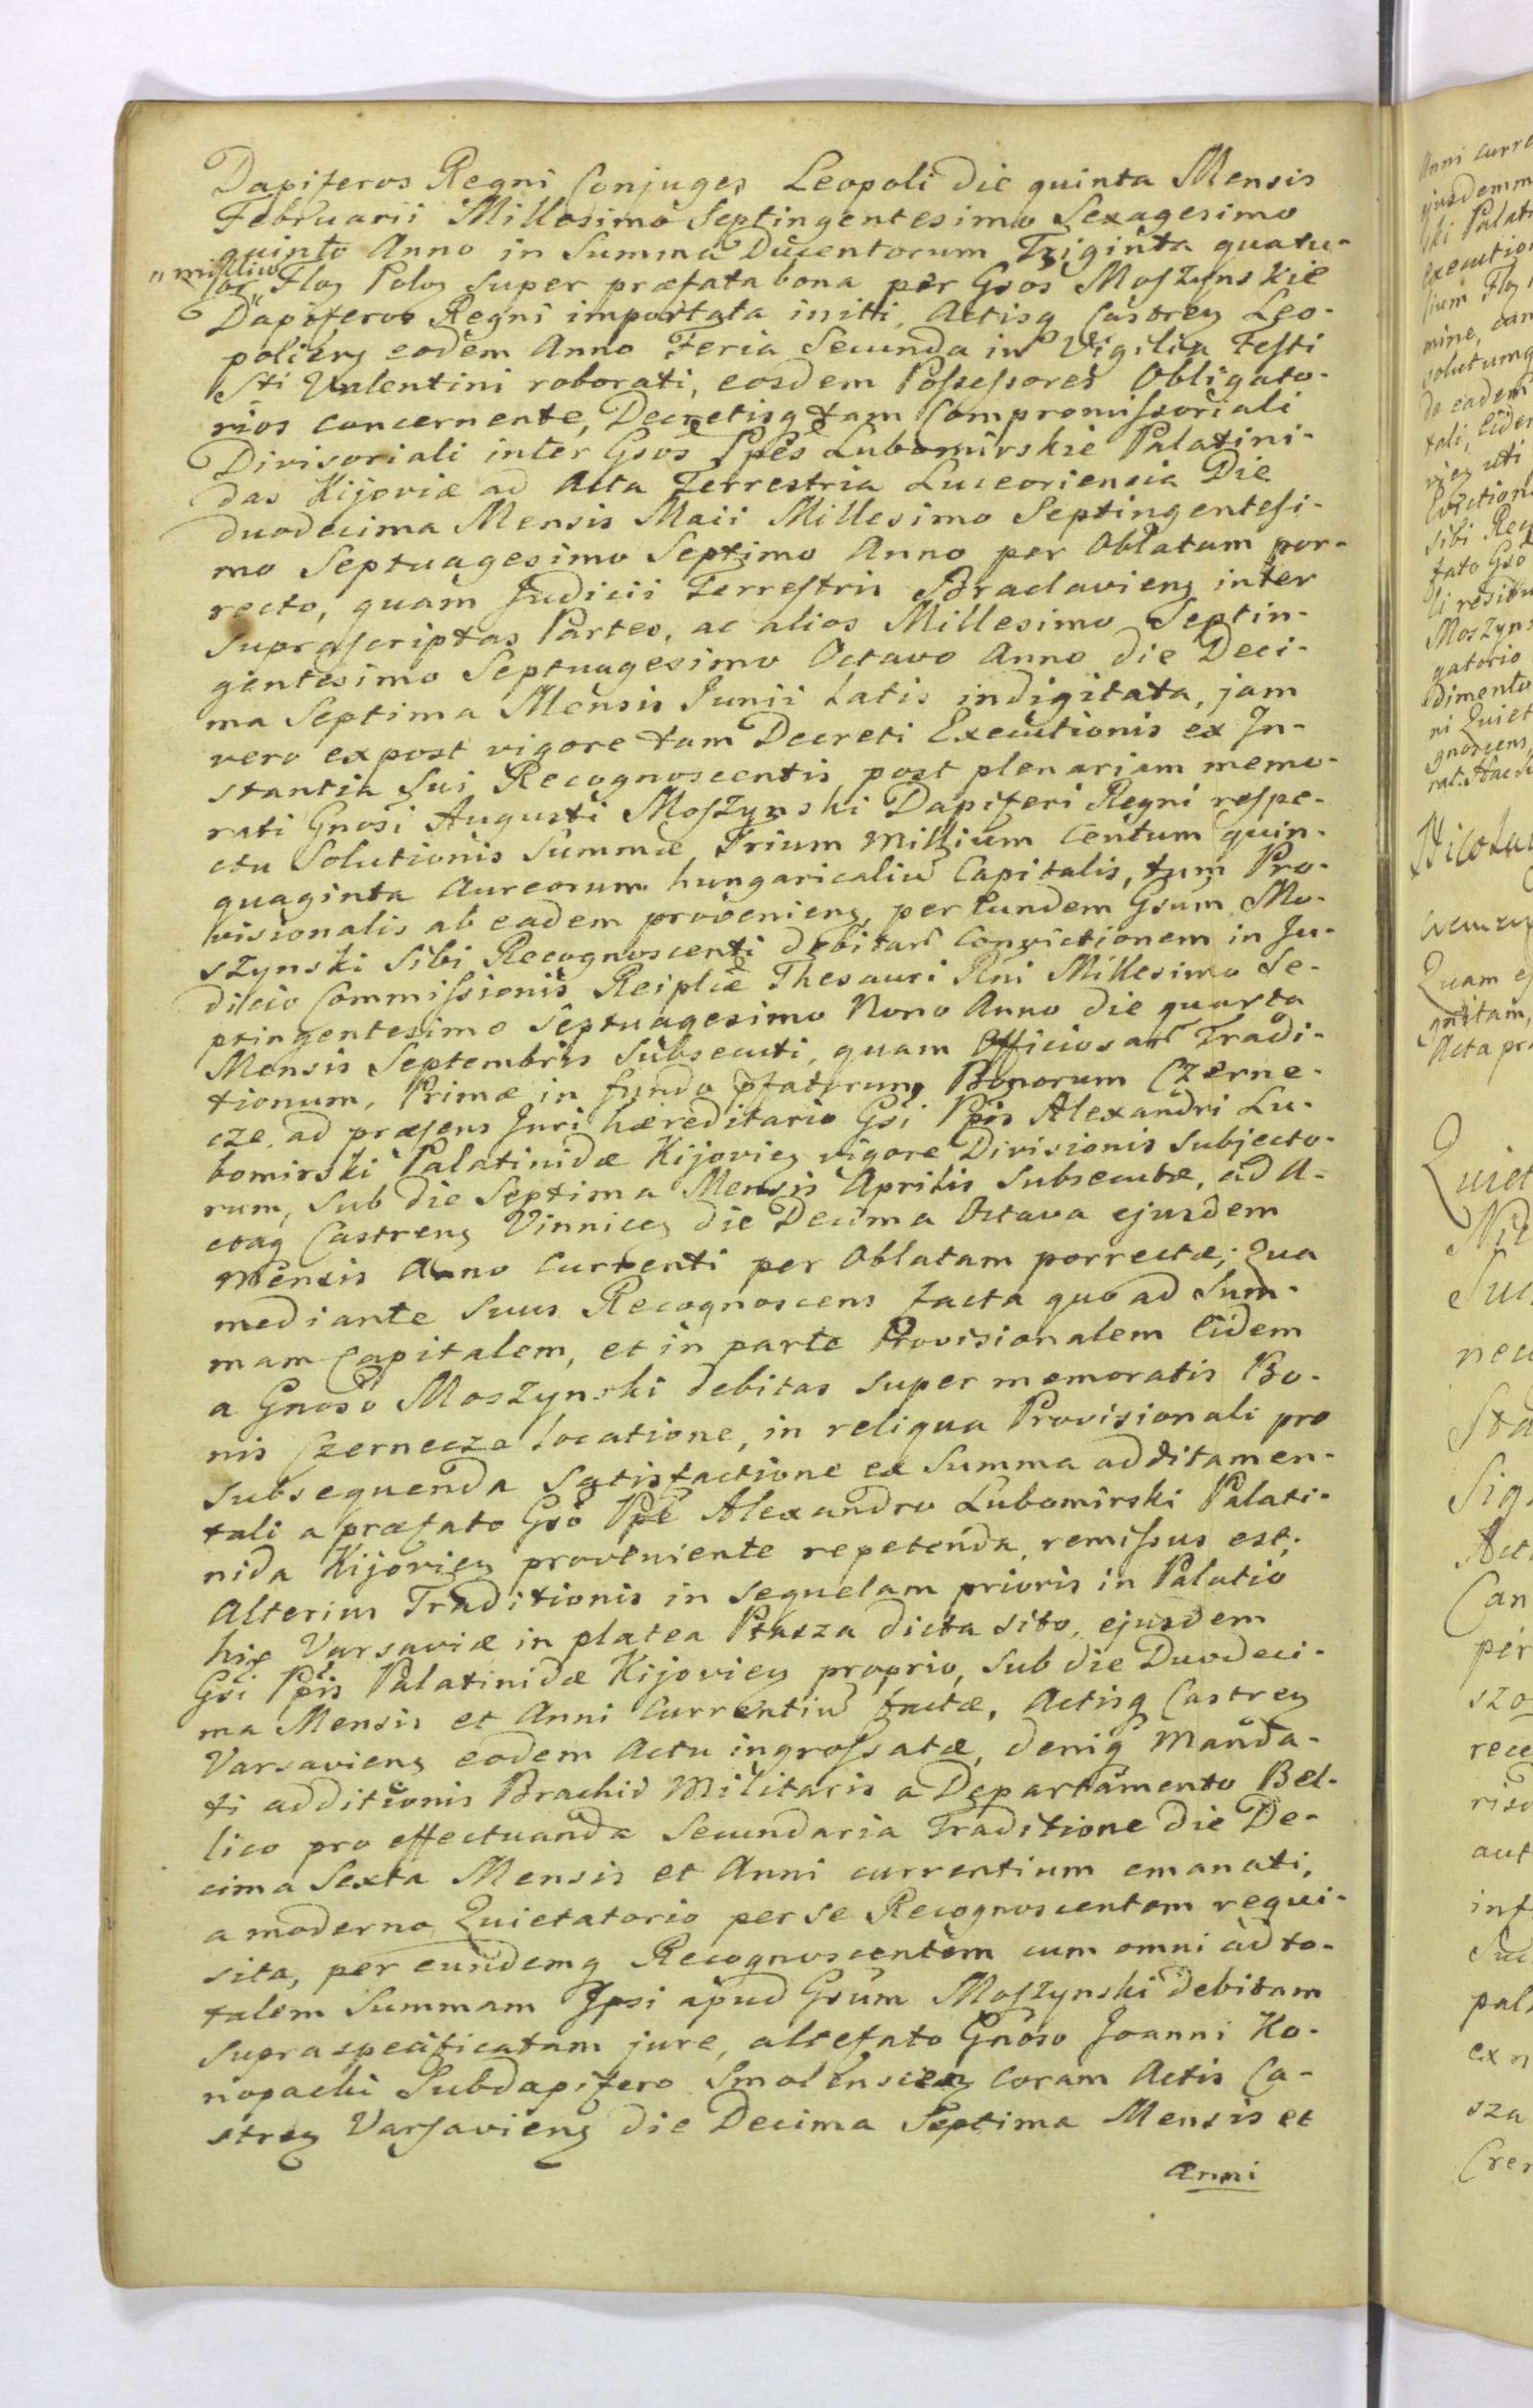 Dapiferos Regni Conjuges Leopoli die quinta Mensis
Februarii Millesimo Septingentesimo Sexagesimo
quinto Anno in Summa Ducentorum Triginta quatu-
"milliũ
or Floꝝ Poloꝝ super præfata bona per Gsos Moszynskie
Dapiferos Regni importata initi, Actisq Castreñ Leo-
polieñ eodem Anno Feria Secunda in Vigilia Festi
Sti Valentini roborati, eosdem Possessores Obligato-
rios concernente, Decretisq tam Compromissoriali
Divisoriali inter Gsos Ppes Lubomirskie Palatini-
das Kijoviæ ad Acta Terrestria Luceoriensia Die
duodecima Mensis Maii Millesimo Septingentesi-
mo Septuagesimo Septimo Anno per Oblatam por-
recto, quam Judicii Terrestris Braclavieñ inter
suprascriptas Partes, ac alios Millesimo Septin-
gentesimo Septuagesimo Octavo Anno die Deci-
ma Septima Mensis Junii latis indigitata, jam
vero ex post vigore tam Decreti Executionis ex In-
stantia sui Recognoscentis post plenariam memo-
rati Gnosi Augusti Moszynski Dapiferi Regni respe-
ctu Solutionis Summæ Trium Millium Centum quin-
quaginta Aureorum hungaricaliũ Capitalis, tum Pro-
visionalis ab eadem provenieñ, per Eundem Gsum Mo-
szynski sibi Recognoscenti debitarũ Convictionem in Ju-
dicio Commissionis Reiplicæ Thesauri Rni Millesimo Se-
ptingentesimo Septuagesimo Nono Anno die quarta
Mensis Septembris Subsecuti, quam Officiosarũ Tradi-
tionum, Primæ in fundo pfatorum Bonorum Czerne-
cze, ad præsens Juri hæreditario Gsi Ppis Alexandri Lu-
bomirski Palatinidæ Kijovieñ vigore Divisionis subjecto-
rum, sub die Septima Mensis Aprilis Subsecutæ, ad A-
ctaq Castreñ Vinniceñ die Decima Octava ejusdem
Mensis Anno Currenti per Oblatam porrectæ; qua
mediante suus Recognoscens facta quo ad Sum-
mam Capitalem, et in parte Provisionalem Eidem
a Gnoso Moszynski debitas super memoratis Bo-
nis Czernecze locatione, in reliqua Provisionali pro
subsequenda satisfactione ex Summa additamen-
tali a præfato Gso Ppe Alexandro Lubomirski Palati-
nida Kijovieñ proveniente repetenda, remissus est;
Alterius Traditionis in sequelam prioris in Palatio
hic Varsaviæ in platea Ptasza dicta sito, ejusdem
Gsi Ppis Palatinidæ Kijovieñ proprio, sub die Duodeci-
ma Mensis et Anni Currentiũ factæ, Actisq Castreñ
Varsavieñ eodem Actu ingrossatæ, deniq Manda-
ti additionis Brachii Militaris a Departamento Bel-
lico pro effectuanda Secundaria Traditione die De-
cima Sexta Mensis et Anni currentium emanati,
a moderno Quietatorio per se Recognoscentem requi-
sita, per eundemq Recognoscentem cum omni ad to-
talem Summam Ipsi apud Gsum Moszynski debitam
supraspecificatam jure, altefato Gnoso Joanni Ko-
nopacki Subdapifero Smolenscieñ coram Actis Ca-
streñ Varsavieñ die Decima Septima Mensis et
Anni